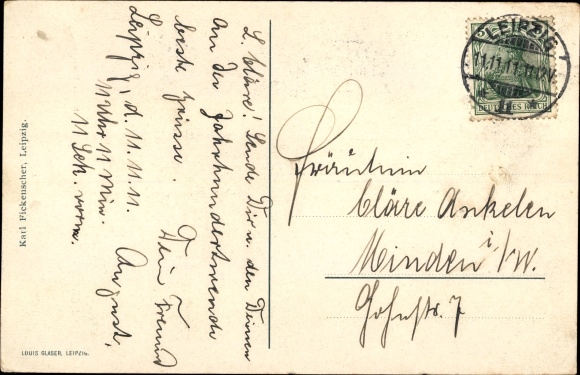 L. Cläre! Sende Dir u. den Deinen
an der Jahrhundertwende
beste Grüsse.
Dein Freund
August.
Leipzig, d. 11.11.11.
11 Uhr 11 Min.
11 Sek. vorm.
Karl Fickenscher, Leipzig.
LOUIS GLASER, LEIPZIG.
LEIPZIG
11.11.11.11-12V.
DEUTSCHES REICH
Fräulein
Cläre Ankelen
Minden i/W.